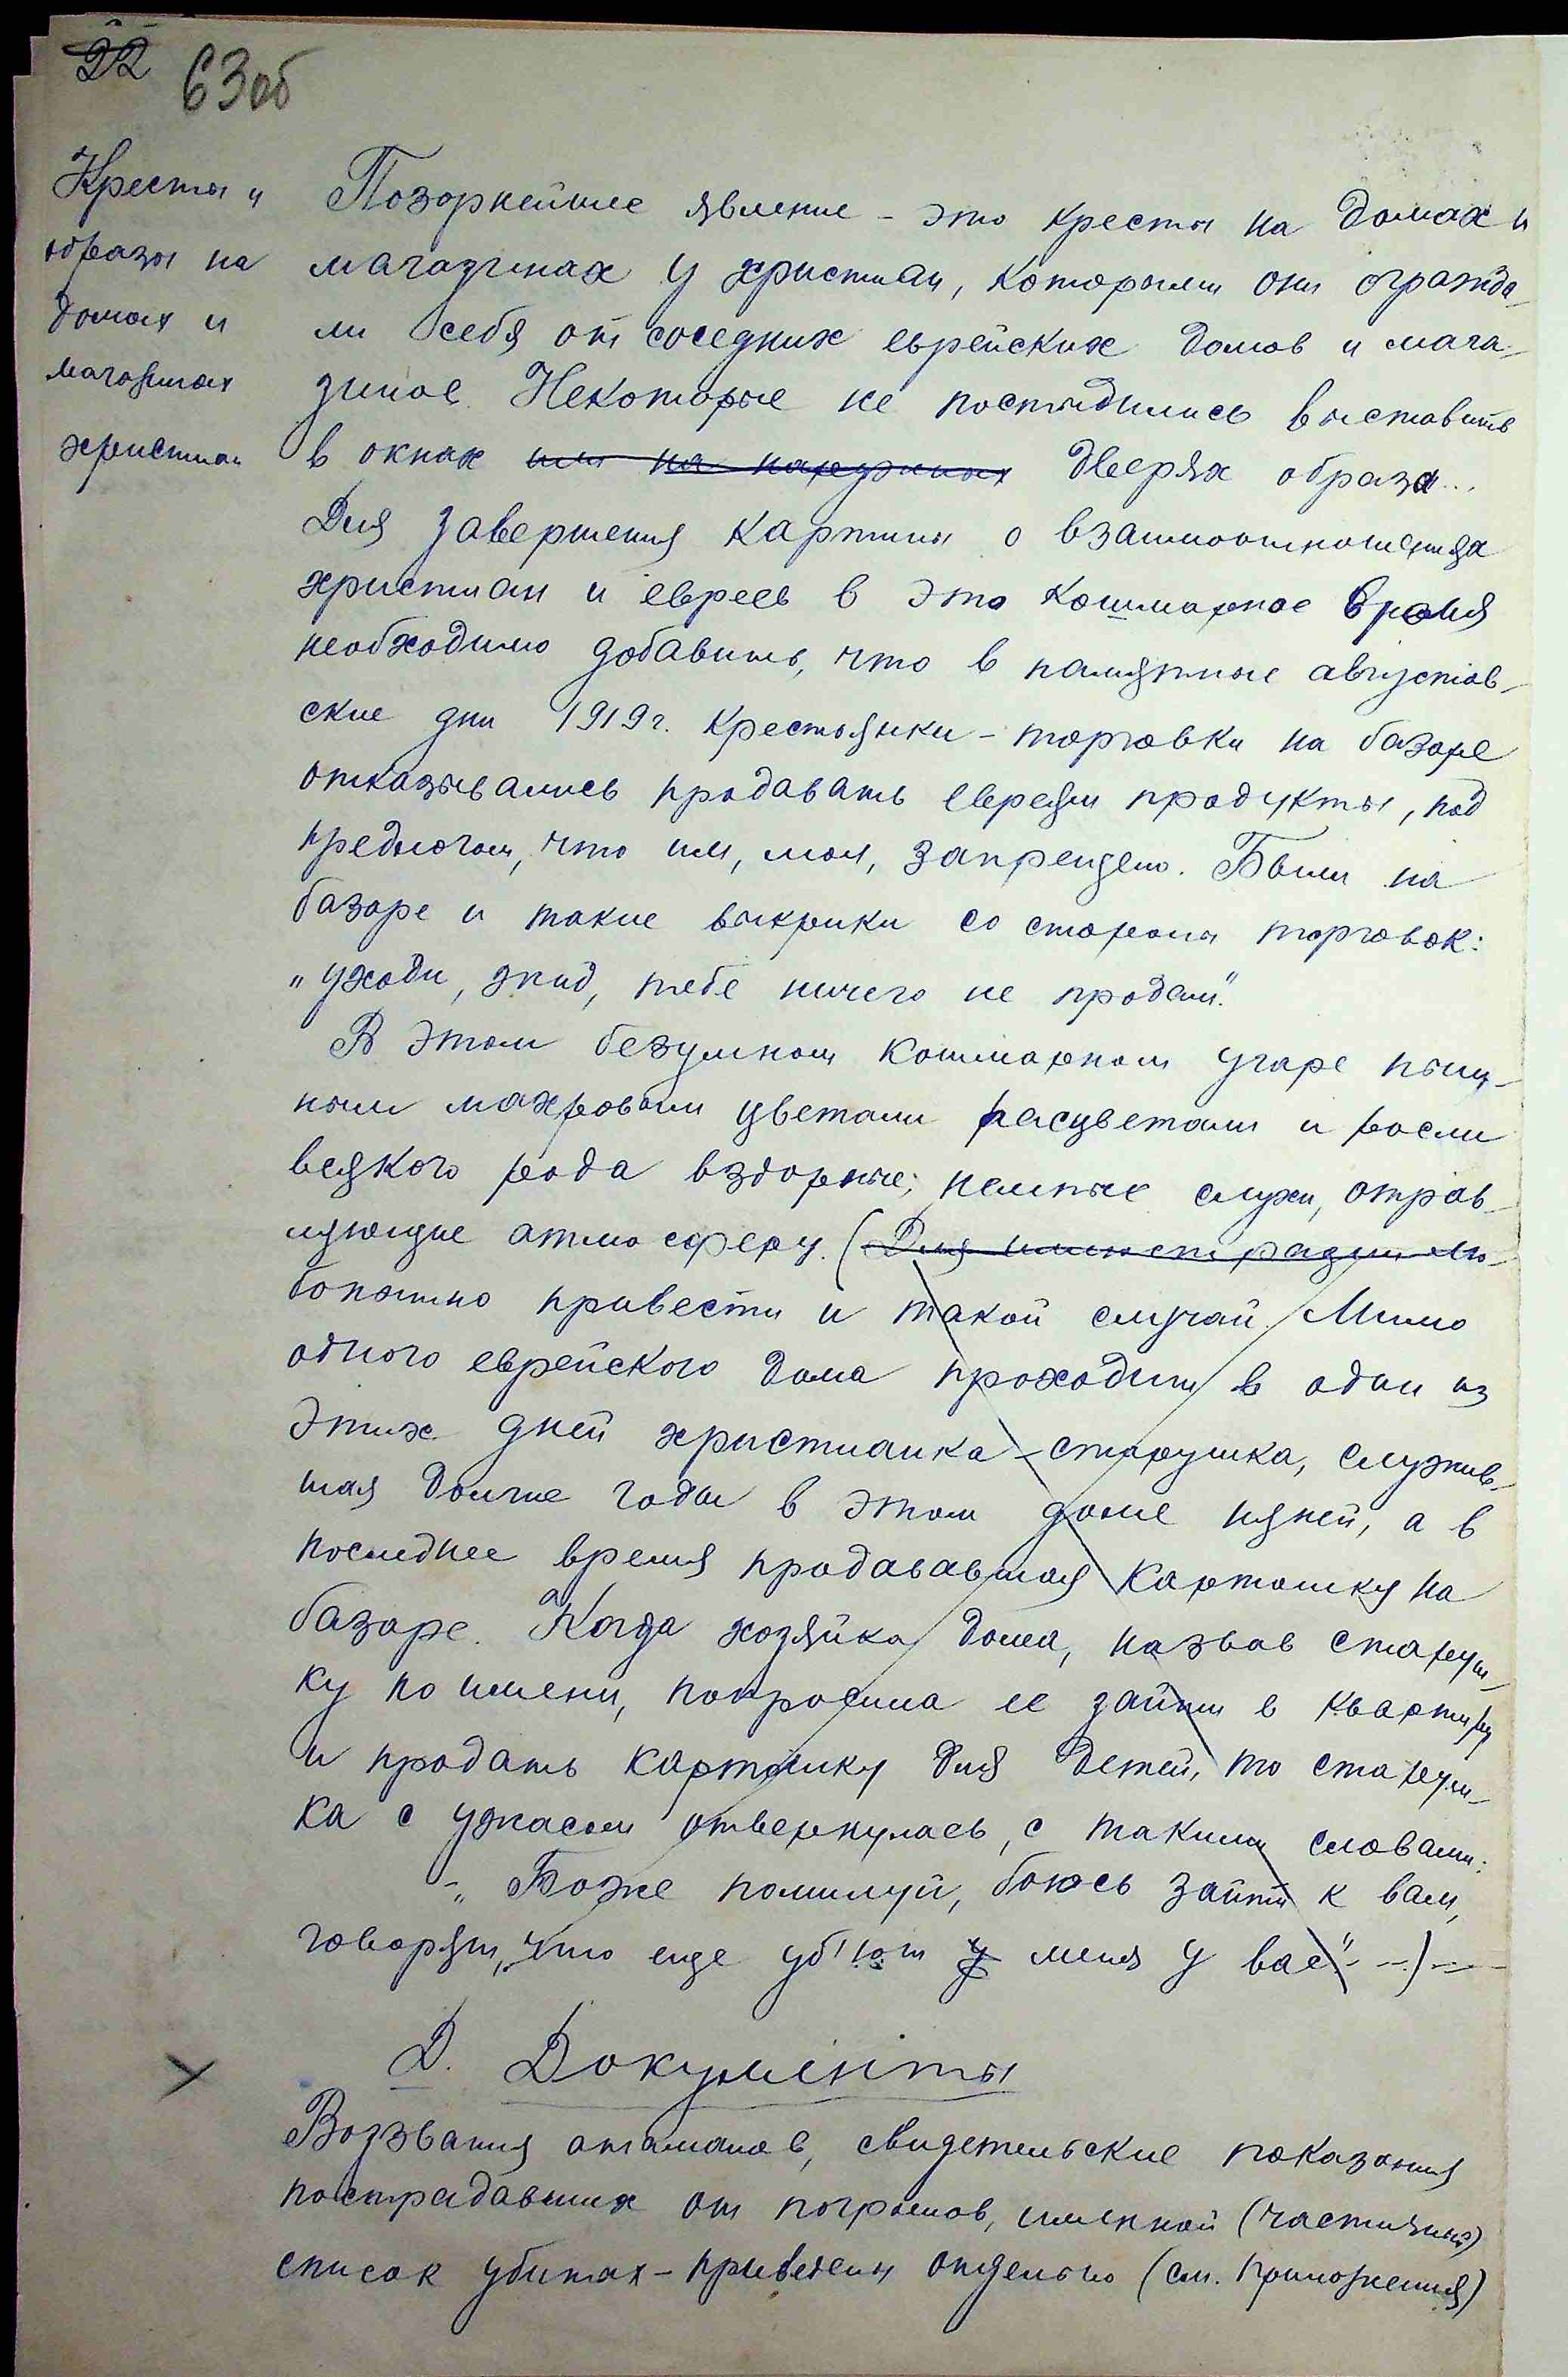 22 63об
Кресты и
образы на
домах и
магазинах
христиан
Позорнейшее явление – это кресты на домах и
магазинах у христиан, которыми они огражда-
ли себя от соседних еврейских домов и мага-
зинов. Некоторые не постыдились выставить
в окнах или на наружных дверях образа...
Для завершения картины о взаимоотношениях
христиан и евреев в это кошмарное время
необходимо добавить, что в памятные августов-
ские дни 1919 г. крестьянки – торговки на базаре
отказывались продавать евреям продукты, под
предлогом, что им, мол, запрещено. Были на
базаре и такие выкрики со стороны торговок:
„уходи, жид, тебе ничего не продам".
В этом безумном кошмарном угаре пыш-
ными махровыми цветами расцветали и росли
всякого рода вздорные, нелепые слухи, отрав-
ляющие атмосферу. (Для иллюстрации лю-
бопытно привести и такой случай. Мимо
одного еврейского дома проходит в один из
этих дней христианка – старушка, служив-
шая долгие годы в этом доме няней, а в
последнее время продававшая картошку на
базаре. Когда хозяйка дома, назвав старуш-
ку по имени, попросила ее зайти в квартиру
и продать картошку для детей, то старуш-
ка с ужасом отвернулась, с такими словами:
– „Боже помилуй, боюсь зайти к вам,
говорят, что еще уб'ют у меня у вас" – –)– –
Д. Документы
Воззвания атаманов, свидетельские показания
пострадавших от погромов, именной (частичный)
список убитых – приведены отдельно (см. приложения)